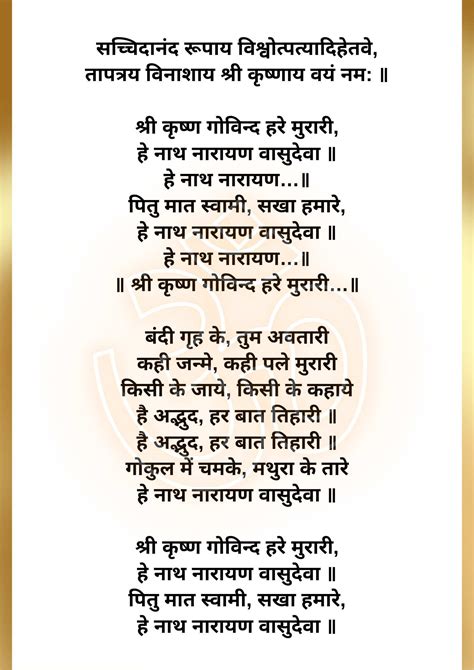 सच्चिदानंद रूपाय विश्वोत्पत्यादिहेतवे,
तापत्रय विनाशाय श्री कृष्णाय वयं नम: ॥
श्री कृष्ण गोविन्द हरे मुरारी,
हे नाथ नारायण वासुदेवा ॥
हे नाथ नारायण...॥
पितु मात स्वामी, सखा हमारे,
हे नाथ नारायण वासुदेवा ॥
हे नाथ नारायण...॥
॥ श्री कृष्ण गोविन्द हरे मुरारी...॥
बंदी गृह के, तुम अवतारी
कही जन्मे, कही पले मुरारी
किसी के जाये, किसी के कहाये
है अद्भुद, हर बात तिहारी ॥
है अद्भुद, हर बात तिहारी ॥
गोकुल में चमके, मथुरा के तारे
हे नाथ नारायण वासुदेवा ॥
श्री कृष्ण गोविन्द हरे मुरारी,
हे नाथ नारायण वासुदेवा ॥
पितु मात स्वामी, सखा हमारे,
हे नाथ नारायण वासुदेवा ॥